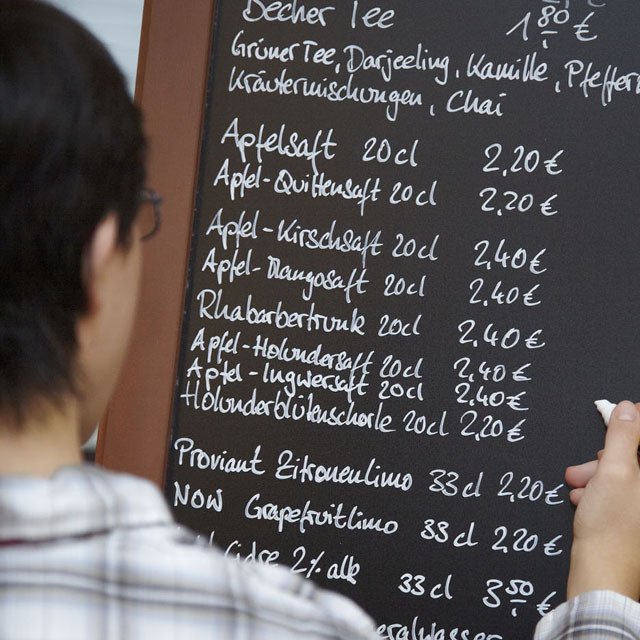 Becher Tee 1 80 €
Grüner Tee, Darjeeling, Kamille, Pfeffer
Kräutermischungen, Chai
Apfelsaft 20cl 2,20€
Apfel-Quittensaft 20cl 2,20€
Apfel-Kirschsaft 20cl 2,40€
Apfel-Mangosaft 20cl 2,40€
Rhabarbertrunk 20cl 2,40€
Apfel-Holundersaft 20cl 2,40€
Apfel-Ingwersaft 20cl 2,40€
Holunderblütenschorle 20cl 2,20€
Proviant Zitronenlimo 33cl 2,20€
NOW Grapefruitlimo 33cl 2,20€
Cidre 2% alk 33cl 3 50 €
eralwasser